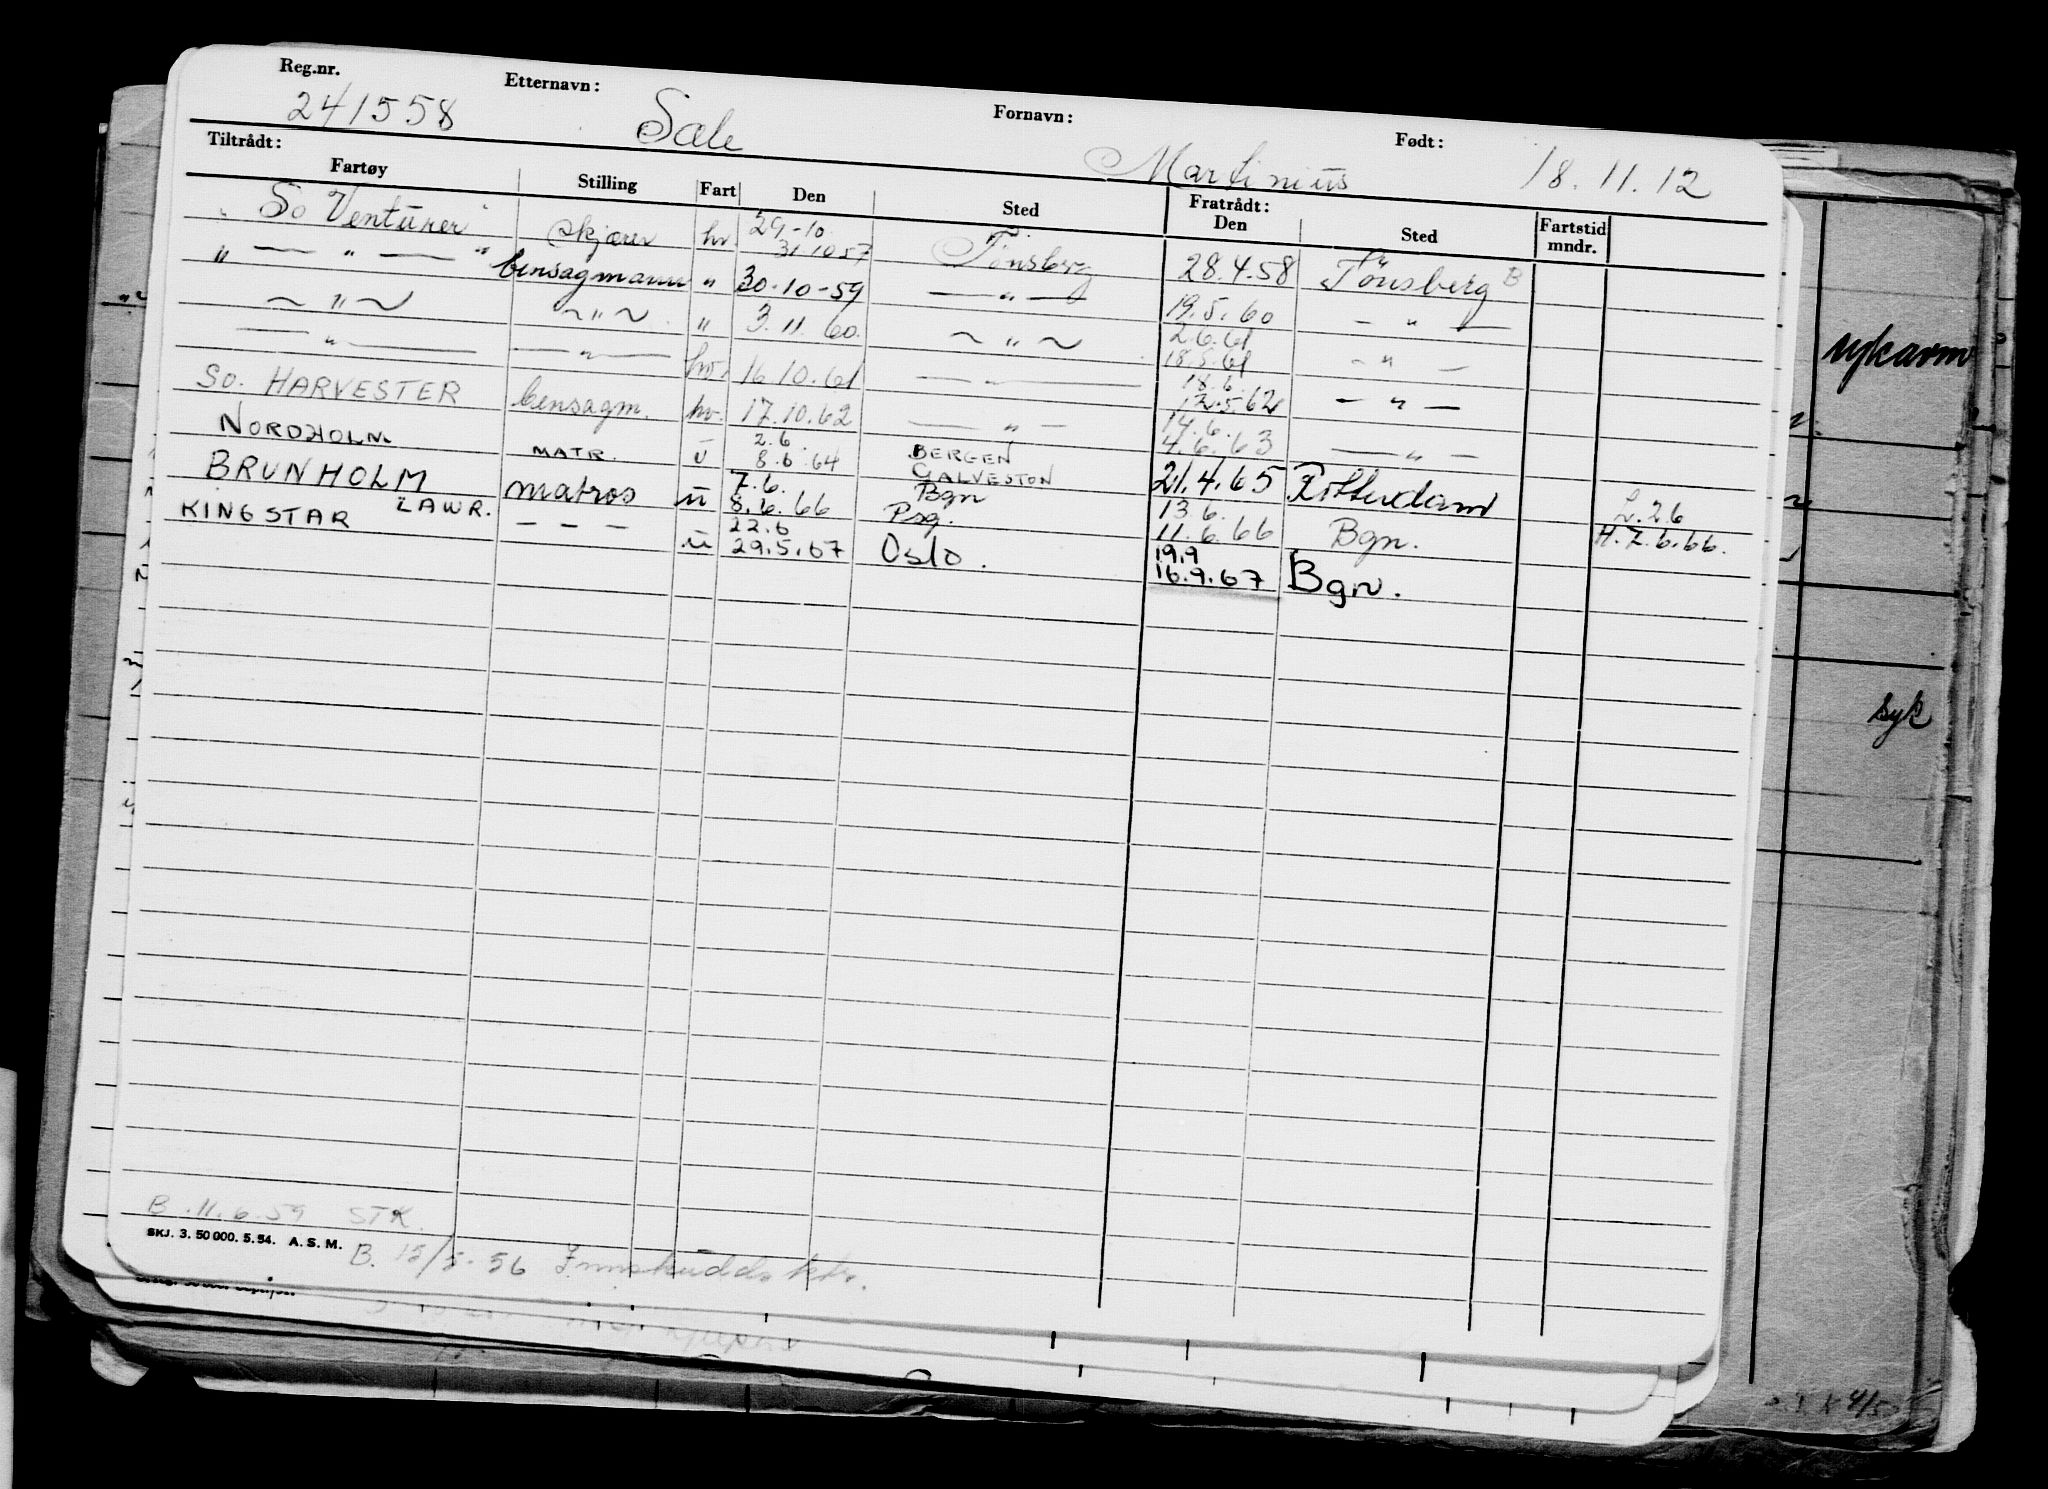 Reg.nr. Etternavn: Fornavn: Født:
241558 Sæle Martinius 18.11.12
Tiltrådt: Fratrådt:
Fartøy Stilling Fart Den Sted Den Sted Fartstid mndr.
"So Venturer" skjærer hv. 29-10 31.10.57 Tønsberg 28.4.58 Tønsberg B
" — " — " bensagmann " 30-10-59 — " — 19.5.60 — " —
~ " ~ ~ " ~ " 3.11.60. ~ " ~ 2.6.61 18.5.61 — " —
— " — — " — hv. 16.10.61 — " — 18.6. 12.5.62 — " —
So. HARVESTER bensagm. hv. 17.10.62 — " — 14.6. 4.6.63 — " —
NORDHOLM MATR. u 2.6 8.6.64 BERGEN GALVESTON 21.4.65 Rotterdam
BRUNHOLM matros u 7.6. 8.6.66 Bgn Psg. 13.6. 11.6.66 Bgn. L.26 H.7.6.66.
KINGSTAR LAWR. — — — u 22.6 29.5.67 Oslo. 19.9 16.9.67 Bgn.
sykavm
syk
B. 11.6.59 STK.
SKJ. 3. 50 000. 5.54. A. S. M.
B. 15/5.56 Innskudds ktr.